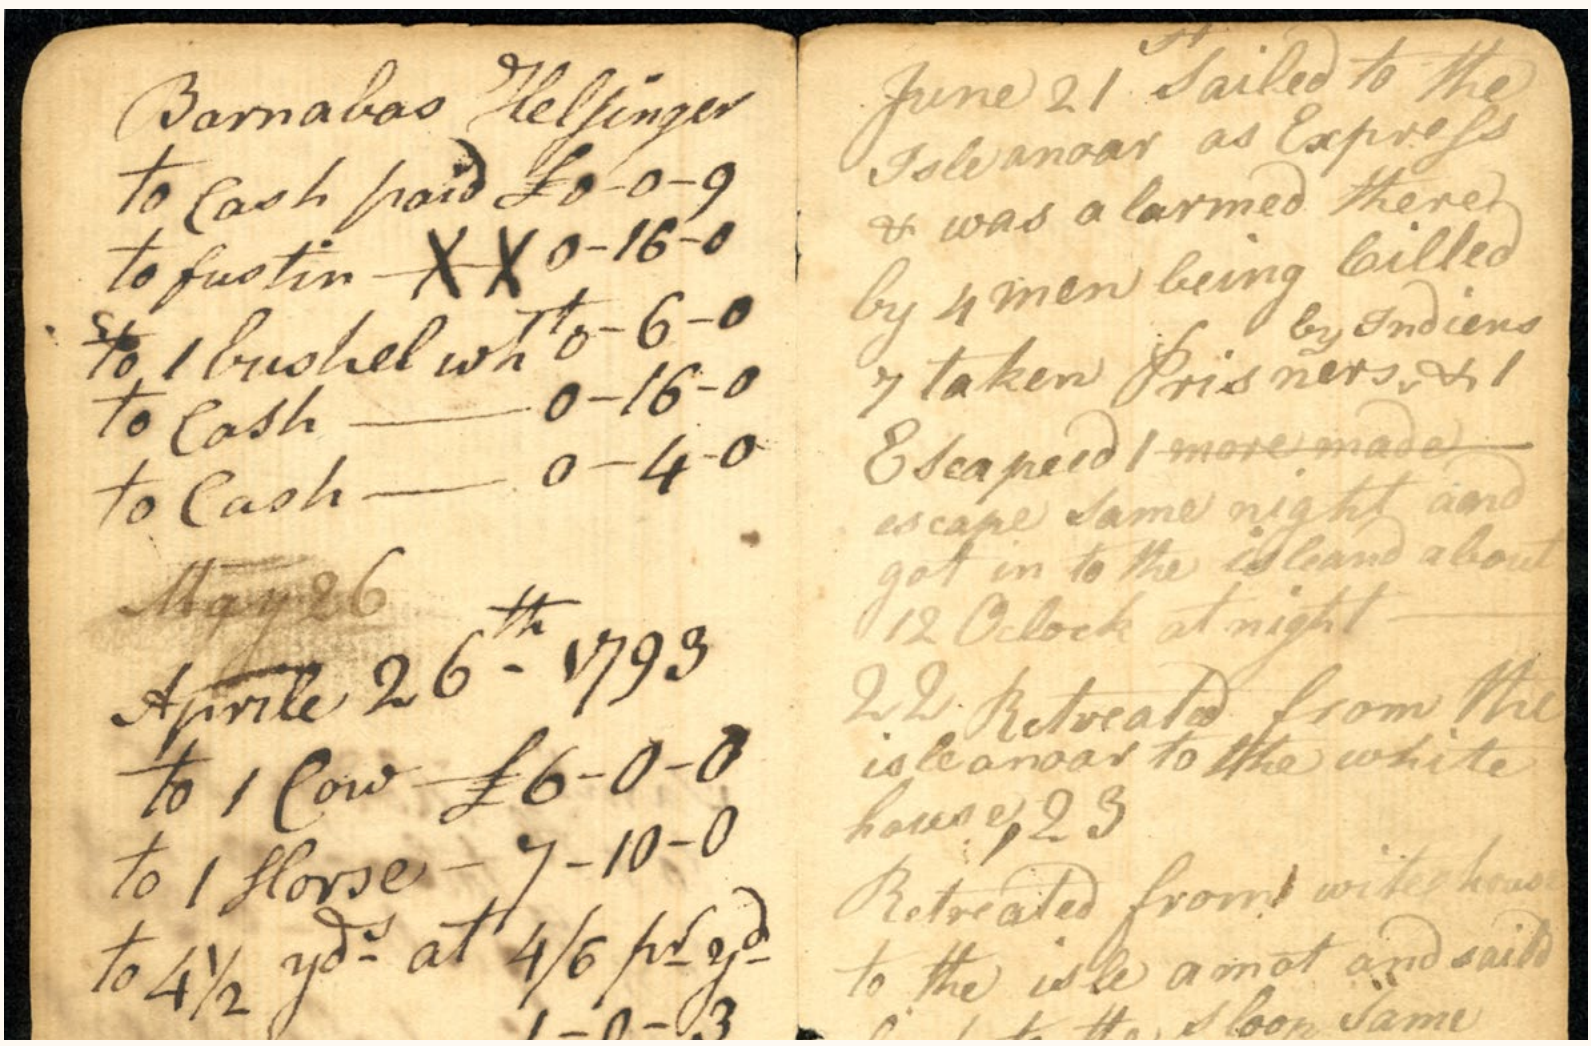 Barnabas Helsinger
to Cash paid £0-0-9
to fustin — X X 0-16-0
to 1 bushel wht 0-6-0
to Cash — 0-16-0
to Cash — 0-4-0
May 26
Aprile 26th - 1793
to 1 Cow — £6-0-0
to 1 Horse — 7-10-0
to 4 1/2 yds at 4/6 pr yd
1-0-3
June 21st Sailed to the
Isleanoar as Express
& was alarmed there
by 4 men being killed
by Indiens
7 taken Prisners, & 1
Escapeed 1 more made
escape same night and
got in to the isleand about
12 Oclock at night —
22 Retreated from the
isleanoar to the white
house, 23
Retreated from wite house
to the isle amot and saild
to the sloop Same